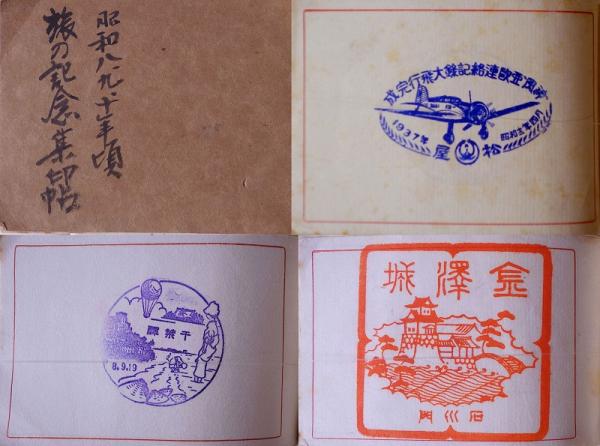 昭和八、九、十年頃
旅の記念集印帖
神風亜欧連絡記録大飛行完成
1937年
昭和十二年四月
松屋
千葉驛
8.9.19
金澤城
石川門